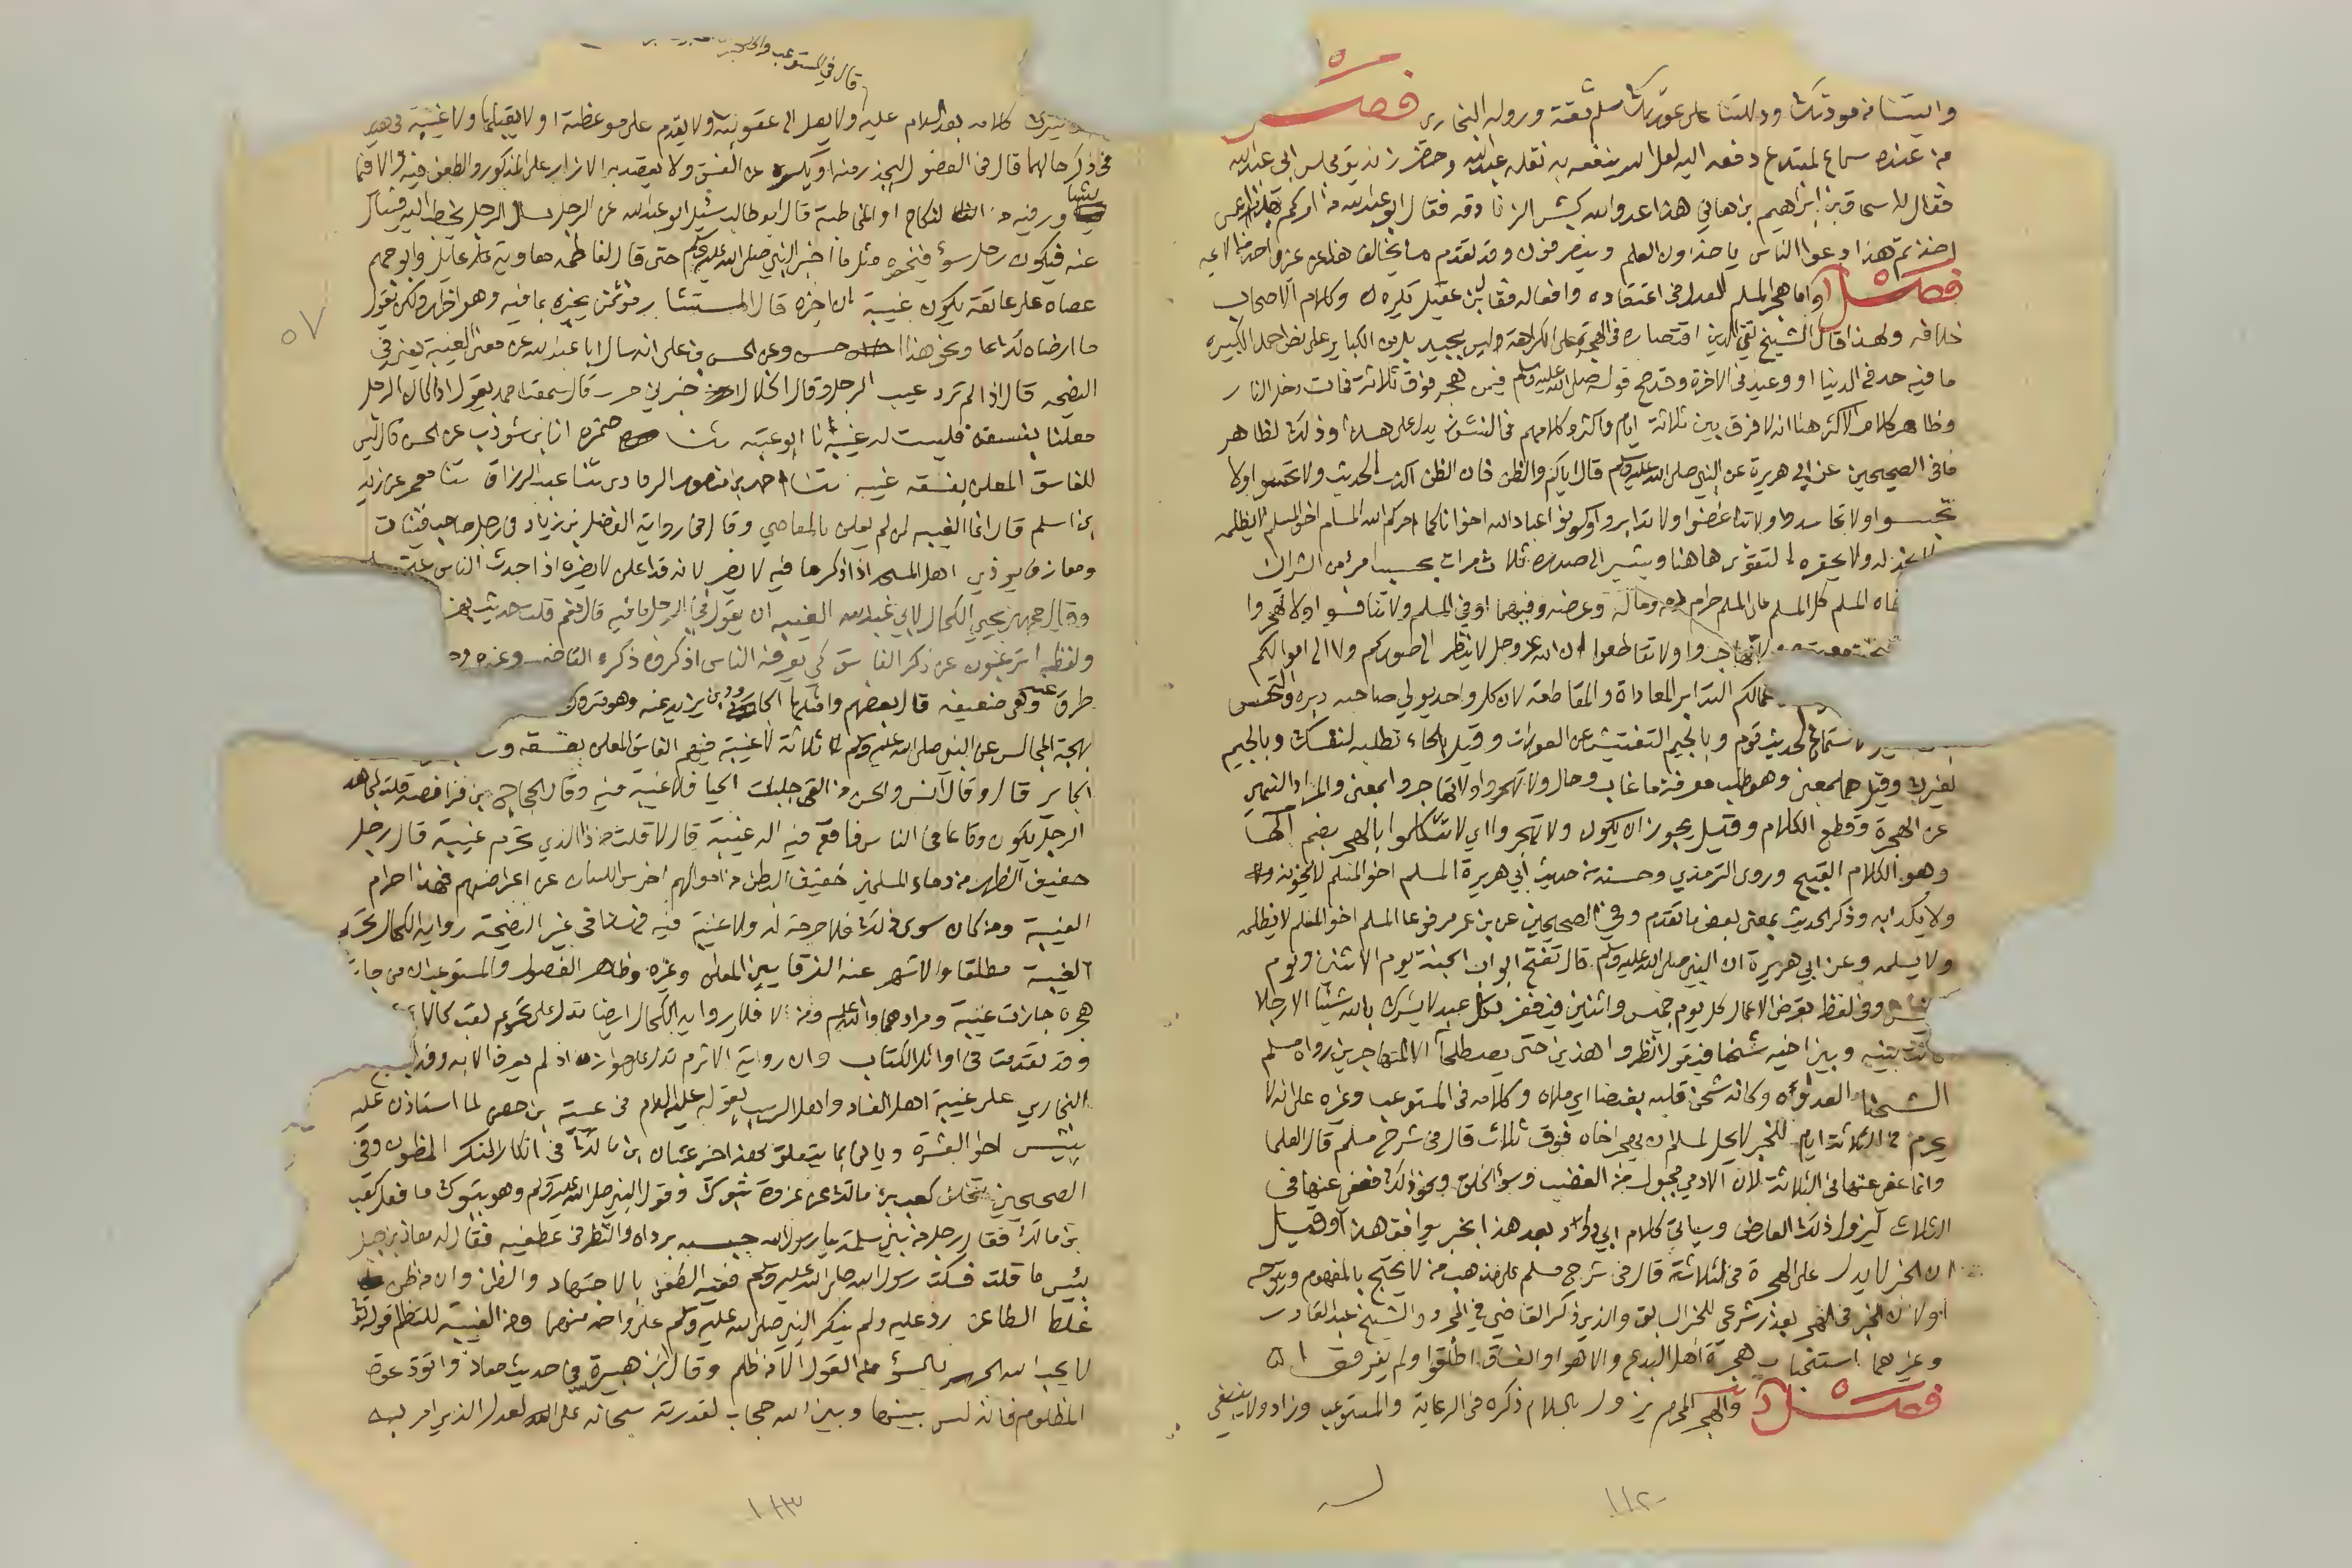 واليتنا من مودتك ودللتنا على عورتك مسلم ثقة ورواه البخاري فصل
من عنده سماع لمبتدع دفعه اليه لعل الله ينفعه به نقله عبدالله وحضر زنديق مجلس ابي عبدالله
فقال اسحاق بن ابراهيم بن هاني هذا عدو الله كبش الزنادقة فقال ابو عبدالله من امركم بهذا عمن
اخذتم هذا دعوا الناس ياخذون العلم وينصرفون وقد تقدم ما يخالف هذا عن غير واحد
فصل واما هجر المسلم العدل في اعتقاده وافعاله فقال ابن عقيل يكره وكلام الاصحاب
خلافه ولهذا قال الشيخ تقي الدين اقتصاره في الهجرة على الكراهة وليس بجيد بل من الكباير على نص احمد الكبيرة
ما فيه حد في الدنيا او وعيد في الاخرة وقد صح قوله صلى الله عليه وسلم فمن هجر فوق ثلاثة فمات دخل النار
وظاهر كلام الاكثر هنا انه لا فرق بين ثلاثة ايام واكثر وكلامهم في النشوز يدل على هذا وذلك لظاهر
ما في الصحيحين عن ابي هريرة عن النبي صلى الله عليه وسلم قال اياكم والظن فان الظن اكذب الحديث ولا تحسسوا ولا
تجسسوا ولا تحاسدوا ولا تباغضوا ولا تدابروا وكونوا عباد الله اخوانا كما امركم الله المسلم اخو المسلم لا يظلمه
لا يخذله ولا يحقره التقوى هاهنا ويشير الى صدره ثلاث مرات بحسب امرئ من الشر ان
اخاه المسلم كل المسلم على المسلم حرام دمه وماله وعرضه وفيهما او في المسلم ولا تنافسوا ولا تهجروا
ولا تقاطعوا ان الله عز وجل لا ينظر الى صوركم ولا الى اموالكم
التدابر المعاداة والمقاطعة لان كل واحد يولي صاحبه دبره والتحسس
الاستماع لحديث قوم وبالجيم التفتيش عن العورات وقيل بالحاء تطلبه لنفسك وبالجيم
لغيرك وقيل هما بمعنى وهو طلب معرفة ما غاب وحال ولا تهجروا ولا تهاجروا بمعنى والمراد النهي
عن الهجرة وقطع الكلام وقيل يجوز ان يكون ولا تهجروا اي لا تتكلموا بالهجر بضم الها
وهو الكلام القبيح وروى الترمذي وحسنه من حديث أبي هريرة المسلم اخو المسلم لا يخونه
ولا يكذبه وذكر الحديث بمعنى بعض ما تقدم وفي الصحيحين عن بن عمر مرفوعا المسلم اخو المسلم لا يظلمه
ولا يسلمه وعن ابي هريرة ان النبي صلى الله عليه وسلم قال تفتح ابواب الجنة يوم الاثنين ويوم
وفي لفظ تعرض الاعمال كل يوم خميس واثنين فيغفر لكل عبد لا يشرك بالله شيئا الا رجلا
كانت بينه وبين اخيه شحنا فيقول انظروا هذين حتى يصطلحا الا المتهاجرين رواه مسلم
الشحنا العداوة وكانه شحن قلبه بغضا اي ملاه وكلامه في المستوعب وغيره على انه لا
يحرم في الثلاثة ايام للخبر لا يحل لمسلم ان يهجر اخاه فوق ثلاث قال في شرح مسلم قال العلما
وانما عفي عنها في الثلاثة لان الادمي مجبول على الغضب وسوء الخلق ونحو ذلك فعفي عنها في
الثلاث ليزول ذلك العارض وسياتي كلام ابي داود بعد هذا بخبر يوافق هذا وقيل
ان الخبر لا يدل على الهجرة في الثلاثة قال في شرح مسلم على مذهب من لا يحتج بالمفهوم
اولا ان الخبر في الهجر بعذر شرعي للخبر السابق والذي ذكر القاضي في المجرد والشيخ عبدالقادر
وغيرهما استحباب هجرة اهل البدع والاهوا والفساق اطلقوا ولم يفرقوا
فصل والهجر المحرم يزول بالسلام ذكره في الرعاية والمستوعب وزاد ولا ينبغي
١١٢
قال في المستوعب
كلامه بعد السلام عليه ولا يصل الى عقوبته ولا يقدم على موعظته او لا يقبلها ولا غيبة في هذين
في ذكر حالهما قال في الفصول ليحذر منه او يكسره عن الفسق ولا يقصد به الازراء على المذكور والطعن فيه ولا فيما
يشينا ورفيه من النكاح او المخاطبة قال ابو طالب سئل ابو عبدالله عن الرجل يسال الرجل يخطب اليه فيسال
عنه فيكون رجل سوء فيخبره مثل ما اخبر النبي صلى الله عليه وسلم حتى قال لفاطمة معاوية عايل وابو جهم
عصاه على عاتقه يكون غيبة ان اخبره قال المستشار مؤتمن يخبره بما فيه وهو اظهر ولكن يقول
ما ارضاه لك ونحو هذا حسن وعن الحسن بن علي انه سال ابا عبدالله عن معنى الغيبة يعني في
النصيحة قال اذا لم ترد عيب الرجل وقال الخلال اخبرني حرب قال سمعت احمد يقول اذا كان الرجل
معلنا بفسقه فليست له غيبة نا ابو عتبة ثنا ضمرة انا بن شوذب عن الحسن قال ليس
للفاسق المعلن بفسقه غيبة ثنا احمد بن منصور الرمادي ثنا عبدالرزاق ثنا معمر عن زيد
بن اسلم قال انما الغيبة لمن لم يعلن بالمعاصي وقال في رواية الفضل بن زياد في رجل صاحب قينات
ومعازف يوذي اهل المسجد اذا ذكر ما فيه لا يضر لانه قد اعلن لا يضره اذا حدث الناس عنه
وقال محمد بن يحيى الكحال لابي عبدالله الغيبة ان يقول في الرجل ما فيه قال نعم قلت حديث بهز
ولفظه اترغبون عن ذكر الفاسق كي يعرفه الناس اذكروه ذكره القاضي وغيره
طرق وهي ضعيفة قال بعضهم وامثلها الجارود بن يزيد عنه وهو متروك
بهجة المجالس عن النبي صلى الله عليه وسلم ثلاثة لا غيبة فيهم الفاسق المعلن بفسقه
الجاير قال وقال انس والحسن من القى جلباب الحيا فلا غيبة فيه وقال الحجاج بن فرافصة قلت لمجاهد
الرجل يكون وقاعا في الناس فاقع فيه اله غيبة قال لا قلت من ذا الذي تحرم غيبته قال رجل
خفيف الظهر من دماء المسلمين خفيف البطن من اموالهم اخرس اللسان عن اعراضهم فهذا حرام
الغيبة ومن كان سوى ذلك فلا حرمة له ولا غيبة فيه فرضنا في غير النصيحة رواية الكحال تحرم
الغيبة مطلقا والاشهر عنه الفرق بين المعلن وغيره وظاهر الفصول والمستوعب ان من جاز
هجره جازت غيبته ومرادهما والله اعلم ومن لا فلا ورواية الكحال ايضا تدل على تحريم لقب
وقد تقدمت في اوائل الكتاب وان رواية الاثرم تدل على جوازه اذا لم يعرف الا به وقد
البخاري على غيبة اهل الفساد واهل الريب بقوله عليه السلام في عيينة بن حصن لما استاذن عليه
بئس اخو العشيرة وياتي ما يتعلق بهذا اخر عتبان بن مالك في انكار المنكر المظنون وفي
الصحيحين تخلف كعب بن مالك عن غزوة تبوك وقول النبي صلى الله عليه وسلم وهو بتبوك ما فعل كعب
بن مالك فقال رجل من بني سلمة يا رسول الله حبسه برداه والنظر في عطفيه فقال له معاذ بن جبل
بئس ما قلت فسكت رسول الله صلى الله عليه وسلم ففيه الطعن بالاجتهاد والظن وان من ظن
غلط الطاعن رد عليه ولم ينكر النبي صلى الله عليه وسلم على واحد منهما ومن الغيبة للتظلم قوله
لا يحب الله الجهر بالسوء من القول الا من ظلم وقال ابن هبيرة في حديث معاذ واتق دعوة
المظلوم فانه ليس بينها وبين الله حجاب لقدرته سبحانه على العدل الذي امر به
٥٧
١١٣